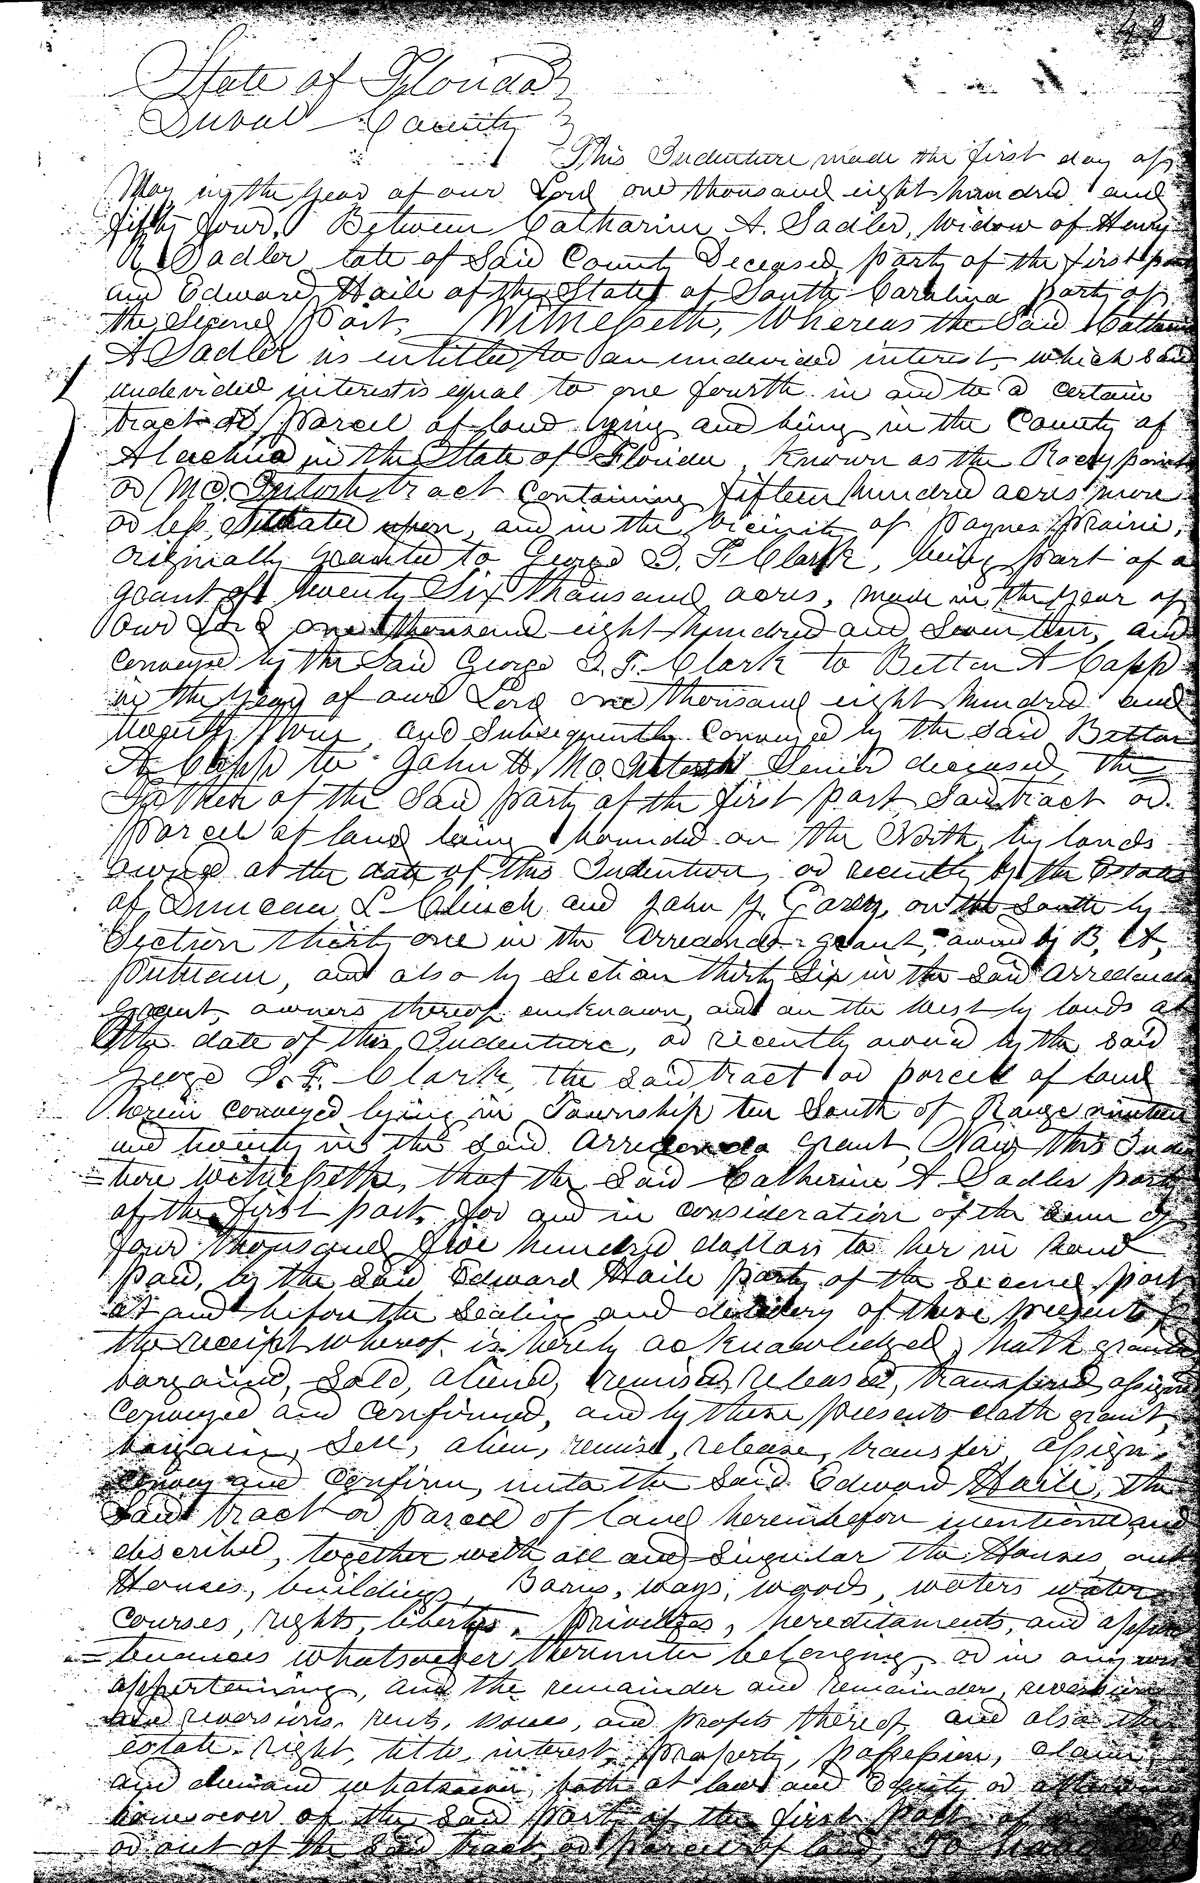 42
State of Florida
Duval County
This Indenture made the first day of
May in the year of our Lord one thousand eight hundred and
fifty four. Between Catharine A. Sadler, Widow of Henry
R Sadler late of Said County Deceased, party of the first part
and Edward Haile of the State of South Carolina party of
the Second part, Witnesseth, Whereas the Said Catharine
A Sadler is entitled to an undivided interest, which said
undivided interest is equal to one fourth in and to a certain
tract or parcel of land lying and being in the County of
Alachua in the State of Florida, known as the Rocky point
or McIntosh tract containing fifteen hundred acres more
or less, Situated upon, and in the vicinity of Paynes Prairie,
originally granted to George I. F. Clark, being part of a
grant of twenty Six thousand acres, made in the year of
our Lord one thousand eight hundred and Seventeen, and
conveyed by the Said George I. F. Clark to Betton A Capp
in the year of our Lord one thousand eight hundred and
twenty and Subsequently conveyed by the Said Betton
A. Capp to John H. McIntosh Senior deceased, the
Father of the Said party of the first part, Said tract or
parcel of land being bounded on the North by lands
owned at the date of this Indenture, or recently by the Estate
of Duncan L Clinch and John G. on the South by
Section thirty one in the Arredondo grant, owned by B. A.
Putnam, and also by Section thirty Six in the said Arredondo
grant, owners thereof unknown, and on the West by lands at
the date of this Indenture, or recently owned by the said
George I. F. Clark, the said tract or parcel of land
herein conveyed lying in Township ten South of Range nineteen
and twenty in the said Arredondo grant, Now this Inden
=ture Witnesseth, that the Said Catherine A Sadler party
of the first part, for and in consideration of the Sum of
four thousand five hundred dollars to her in hand
paid, by the Said Edward Haile party of the Second part
at and before the Sealing and delivery of these presents,
the receipt whereof is hereby acknowledged, hath granted
bargained, Sold, aliened, remised, released, transfered, assigned
Conveyed and Confirmed, and by these presents doth grant,
bargain, Sell, alien, remise, release, transfer, assign,
convey and Confirm, unto the Said Edward Haile, the
Said tract or parcel of land hereinbefore mentioned and
described, together with all and Singular the Houses, out
Houses, buildings, Barns, ways, woods, waters water
courses, rights, liberties, privileges, hereditaments, and appur
=tenances whatsoever thereunto belonging, or in any wise
appertaining, and the remainder and remainders, reversion
and reversions, rents, issues, and profits thereof, and also the
estate, right, title, interest, property, possession, claim,
and demand whatsoever, both at law and Equity or otherwise
howsoever of the Said party of the first part, of
or out of the Said tract or parcel of land, To have